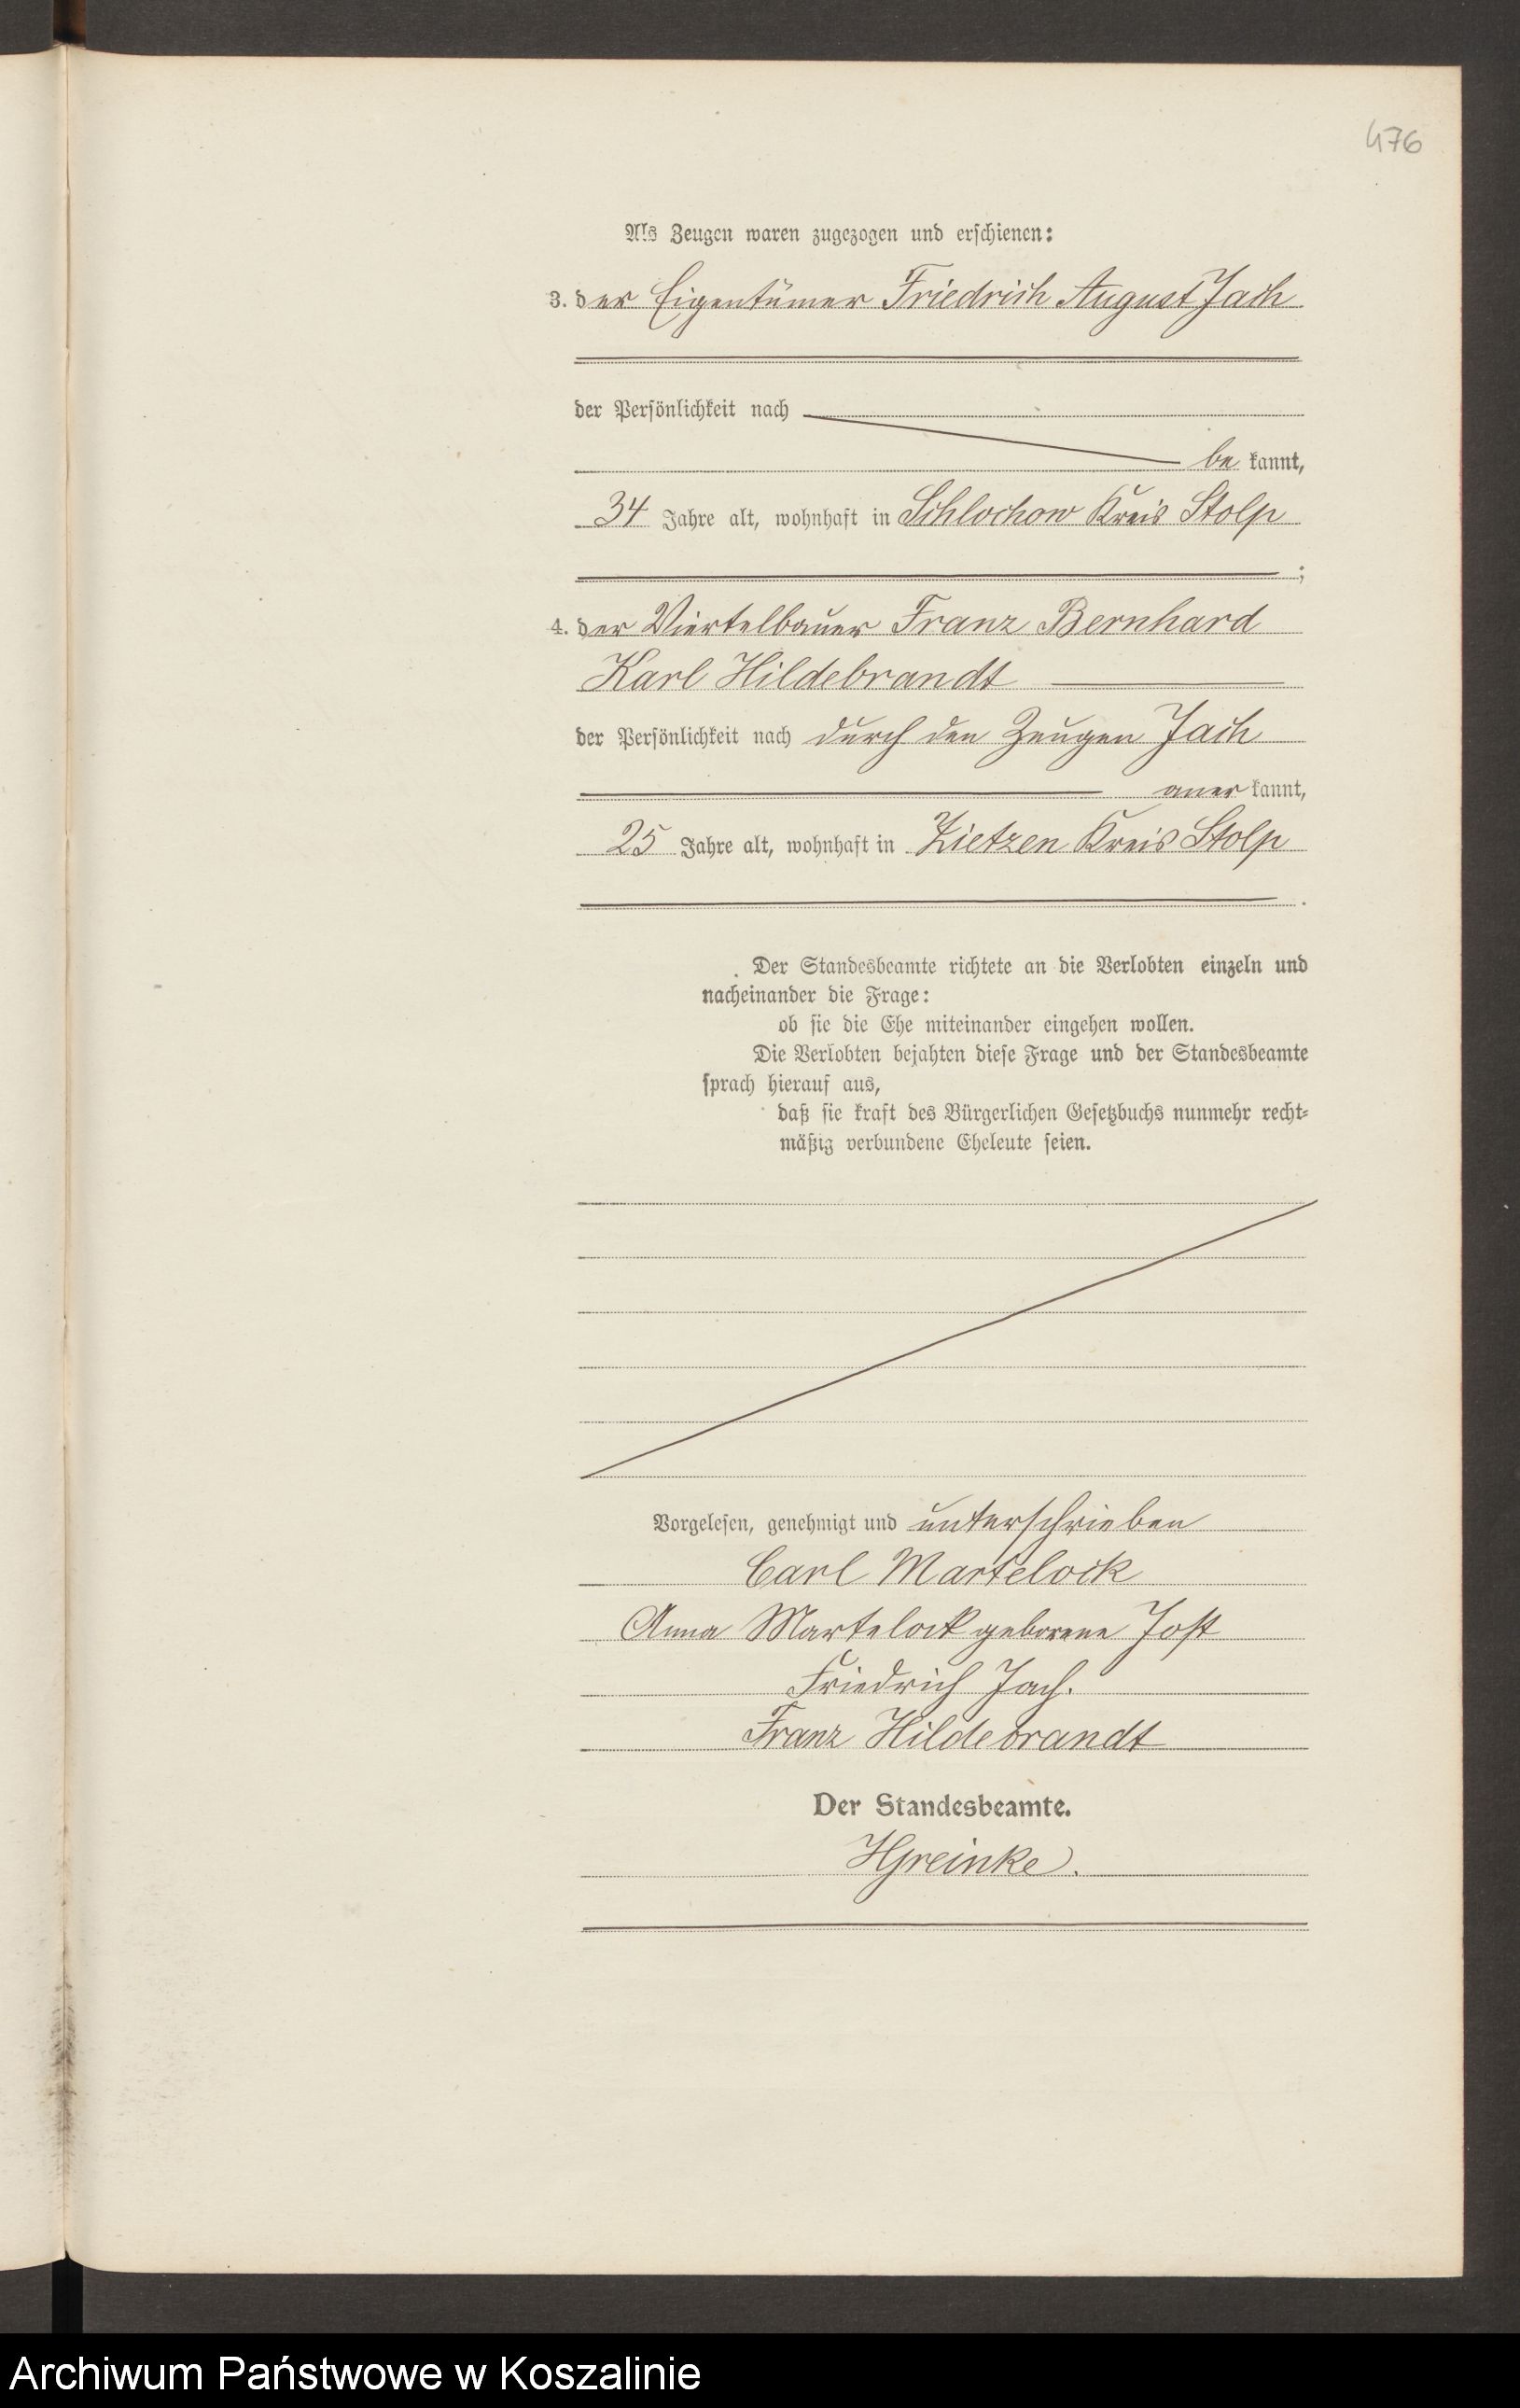 476
Als Zeugen waren zugezogen und erschienen:
3. der Eigentümer Friedrich August Jach
der Persönlichkeit nach
be kannt,
34 Jahre alt, wohnhaft in Schlochow Kreis Stolp
;
4. der Viertelbauer Franz Bernhard
Karl Hildebrandt
der Persönlichkeit nach durch den Zeugen Jach
aner kannt,
25 Jahre alt, wohnhaft in Zietzen Kreis Stolp
.
Der Standesbeamte richtete an die Verlobten einzeln und
nacheinander die Frage:
ob sie die Ehe miteinander eingehen wollen.
Die Verlobten bejahten diese Frage und der Standesbeamte
sprach hierauf aus,
daß sie kraft des Bürgerlichen Gesetzbuchs nunmehr recht-
mäßig verbundene Eheleute seien.
Vorgelesen, genehmigt und unterschrieben
Carl Martelock
Anna Martelock geborene Jost
Friedrich Jach.
Franz Hildebrandt
Der Standesbeamte.
HGreinke.
Archiwum Państwowe w Koszalinie